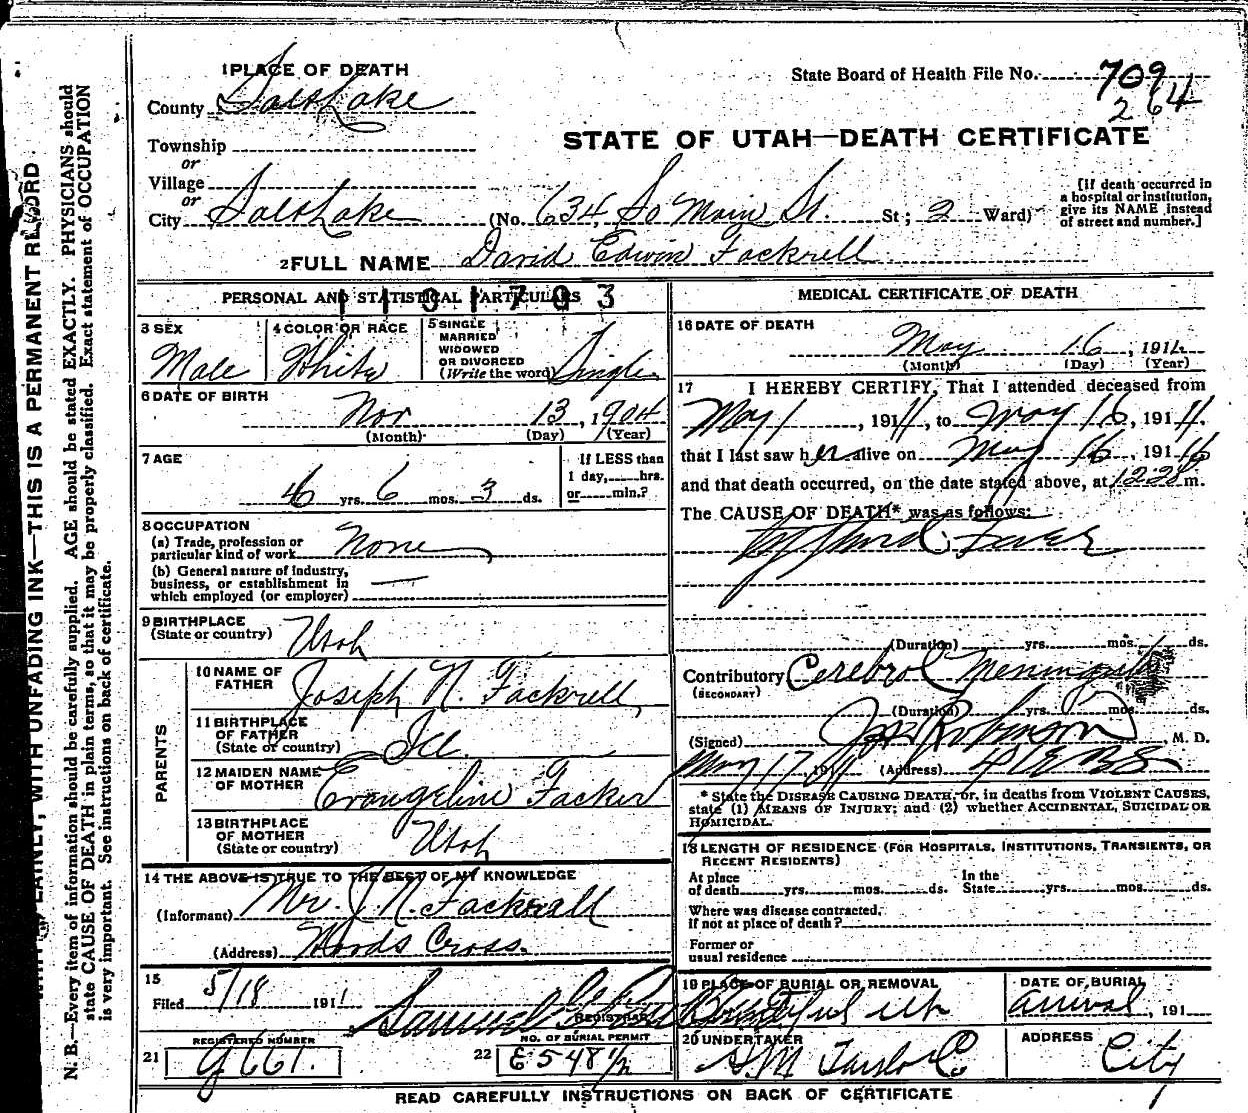 1 PLACE OF DEATH
State Board of Health File No. 709
264
County Salt Lake
STATE OF UTAH—DEATH CERTIFICATE
Township
or
Village
or
City Salt Lake (No. 634 So Main St. St; 2 Ward)
[If death occurred in a hospital or institution, give its NAME instead of street and number.]
2 FULL NAME David Edwin Fackrell
PERSONAL AND STATISTICAL PARTICULARS
3 SEX
Male
4 COLOR OR RACE
White
5 SINGLE
MARRIED
WIDOWED
OR DIVORCED
(Write the word) Single
6 DATE OF BIRTH
Nov 13, 1904
(Month) (Day) (Year)
7 AGE
6 yrs. 6 mos. 3 ds.
If LESS than
1 day, hrs.
or min.?
8 OCCUPATION
(a) Trade, profession or
particular kind of work None
(b) General nature of industry,
business, or establishment in
which employed (or employer)
9 BIRTHPLACE
(State or country) Utah
PARENTS
10 NAME OF
FATHER Joseph N. Fackrell
11 BIRTHPLACE
OF FATHER
(State or country) Ill.
12 MAIDEN NAME
OF MOTHER Evangeline
13 BIRTHPLACE
OF MOTHER
(State or country) Utah
14 THE ABOVE IS TRUE TO THE BEST OF MY KNOWLEDGE
(Informant) Mr. J. N. Fackrell
(Address) Woods Cross.
15
Filed 5/18 1911 Samuel
REGISTRAR
REGISTERED NUMBER
21
NO. OF BURIAL PERMIT
22 E548 1/2
MEDICAL CERTIFICATE OF DEATH
16 DATE OF DEATH
May 16, 1911.
(Month) (Day) (Year)
17 I HEREBY CERTIFY, That I attended deceased from
May 1, 1911, to May 16, 1911.
that I last saw h alive on May 16, 191
and that death occurred, on the date stated above, at m.
The CAUSE OF DEATH* was as follows:
Typhoid Fever
(Duration) yrs. mos. ds.
Contributory Cerebral Meningitis
(SECONDARY)
(Duration) yrs. mos. ds.
(Signed) Robinson, M. D.
May 17 1911 (Address)
* State the DISEASE CAUSING DEATH, or, in deaths from VIOLENT CAUSES,
state (1) MEANS OF INJURY; and (2) whether ACCIDENTAL, SUICIDAL OR
HOMICIDAL.
18 LENGTH OF RESIDENCE (FOR HOSPITALS, INSTITUTIONS, TRANSIENTS, OR
RECENT RESIDENTS)
At place
of death yrs. mos. ds. In the State yrs. mos. ds.
Where was disease contracted,
if not at place of death?
Former or
usual residence
19 PLACE OF BURIAL OR REMOVAL
Bountiful Utah
DATE OF BURIAL
arrival, 191
20 UNDERTAKER
S. M. Taylor Co
ADDRESS
City
READ CAREFULLY INSTRUCTIONS ON BACK OF CERTIFICATE
PLAINLY, WITH UNFADING INK—THIS IS A PERMANENT RECORD
N. B.—Every item of information should be carefully supplied. AGE should be stated EXACTLY. PHYSICIANS should
state CAUSE OF DEATH in plain terms, so that it may be properly classified. Exact statement of OCCUPATION
is very important. See instructions on back of certificate.